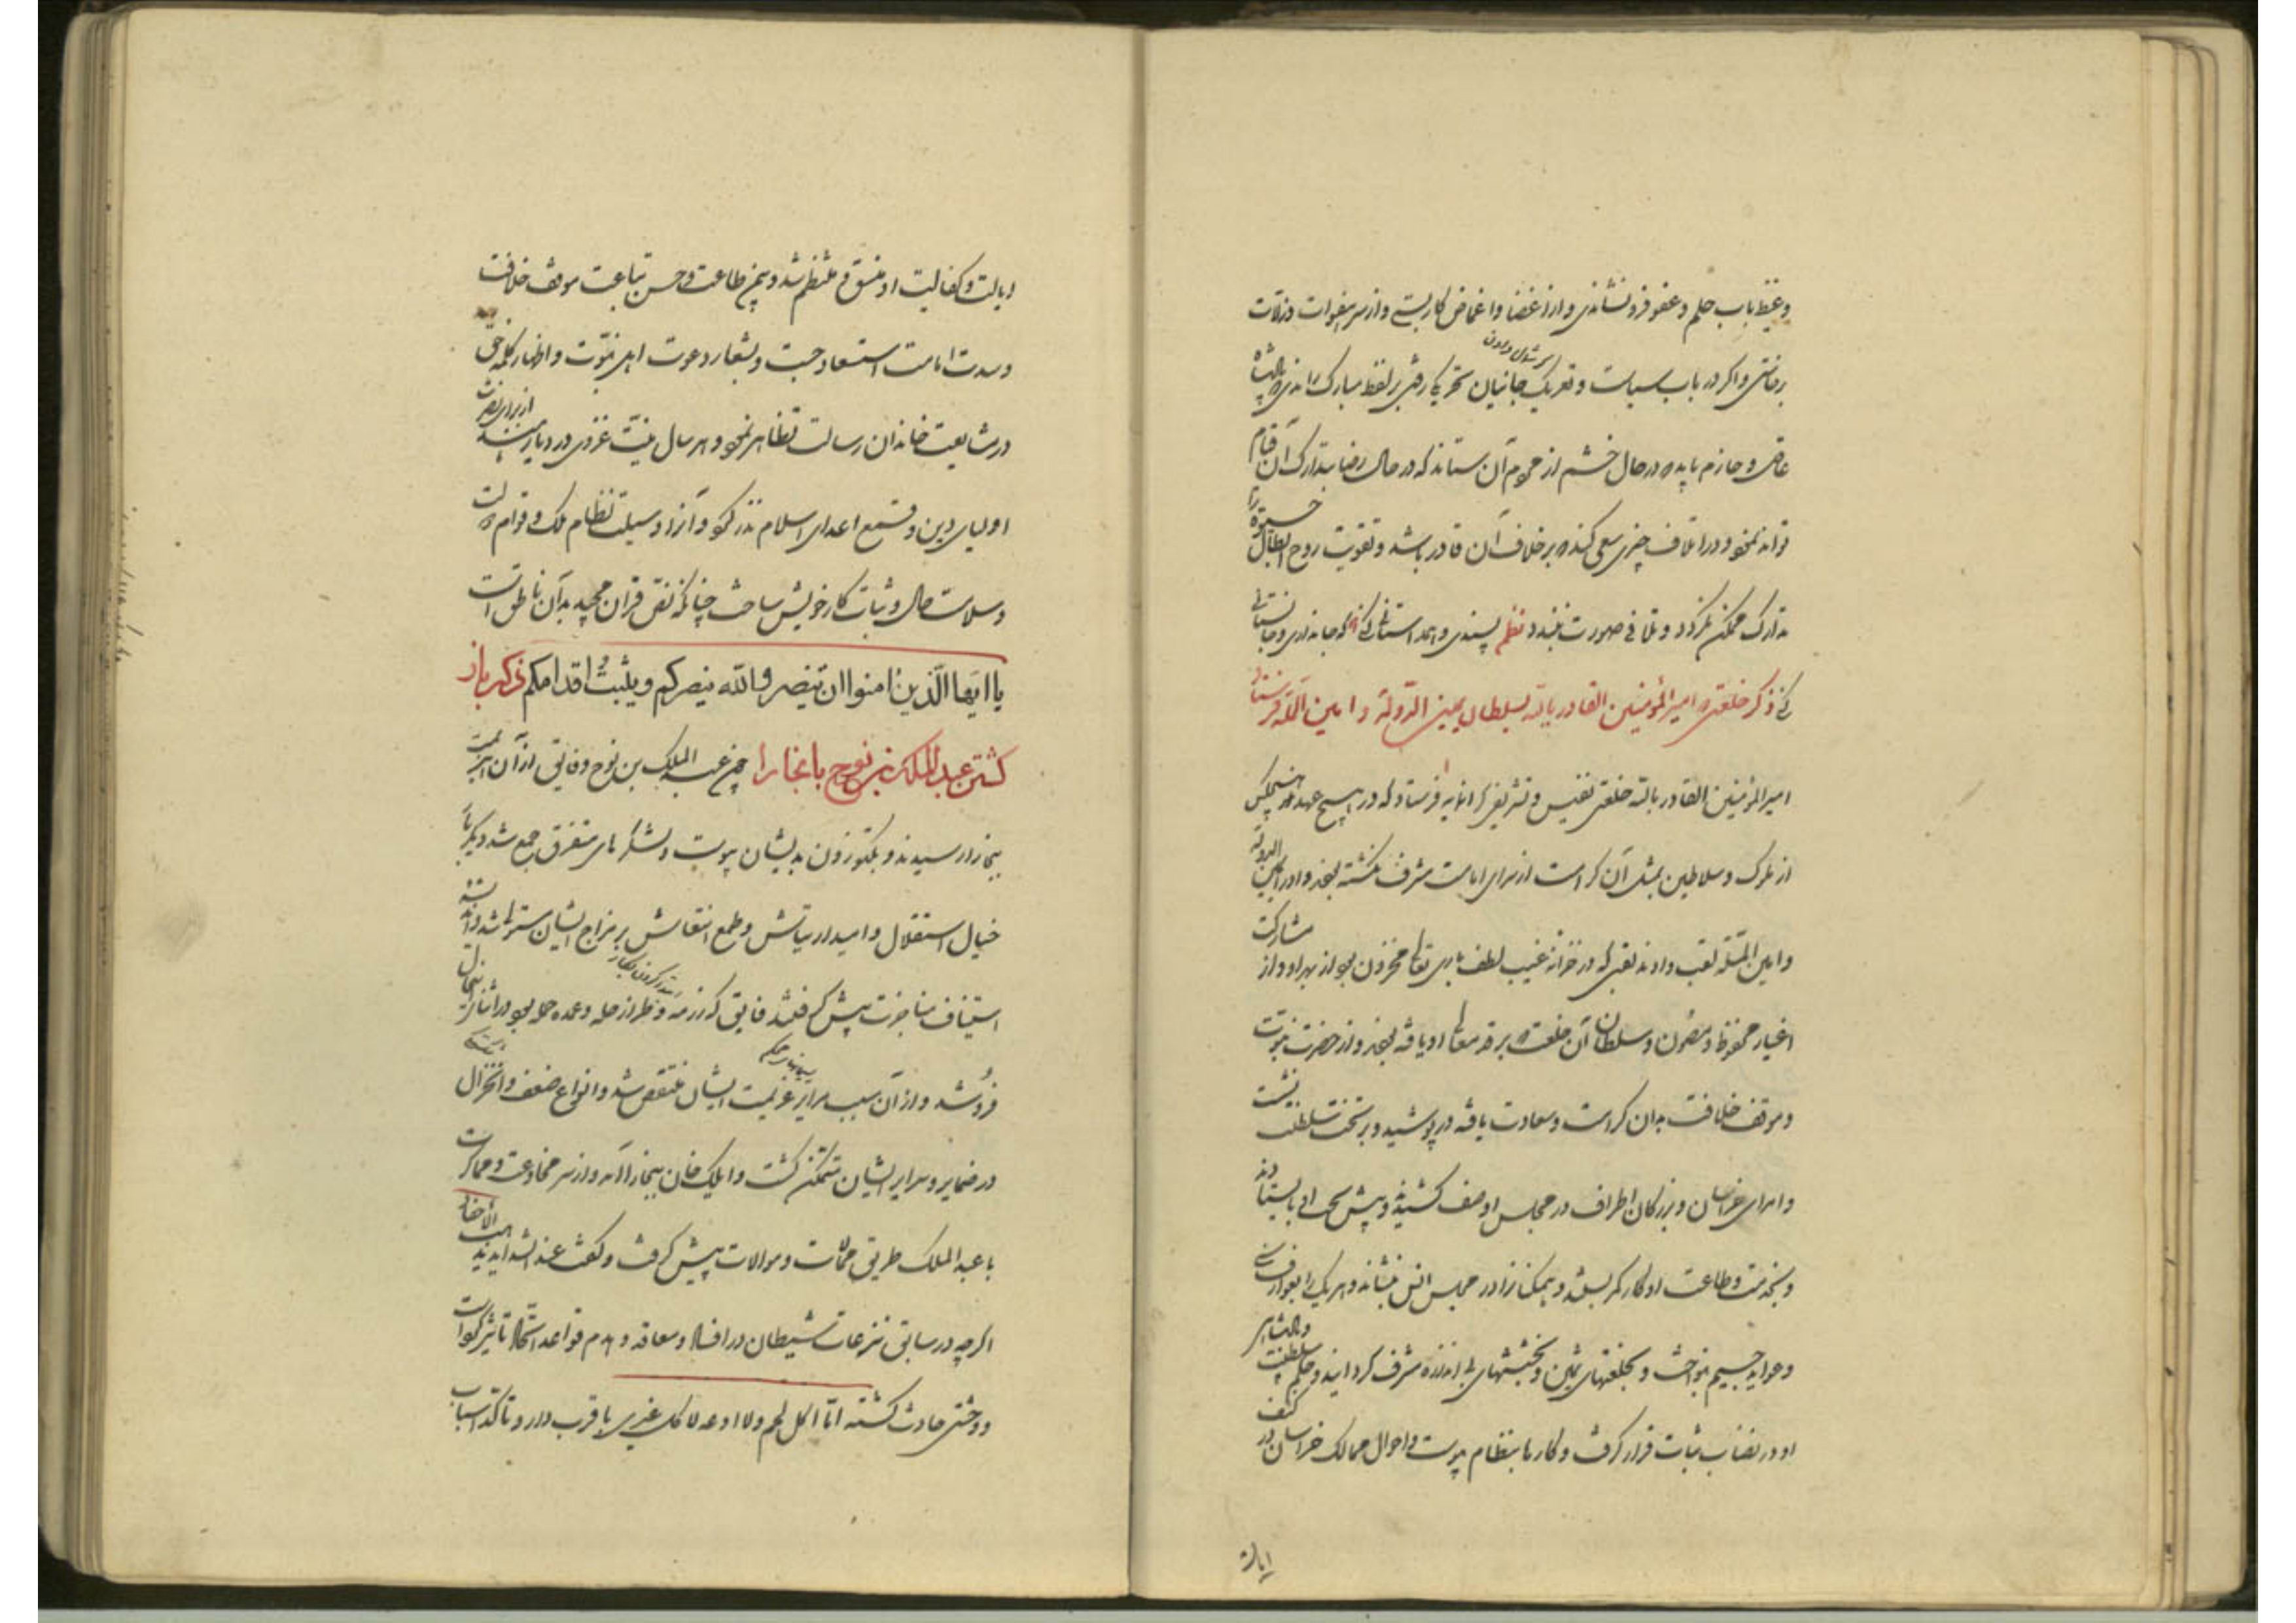 وغیظ باب حلم و عفو فرو نشاندی و از اغضا و اغماض کار بستی و از سر هفوات و زلات
برخاستی و اگر در باب سیاست و تعریک جانیان تحریکی رفتی بر لفظ مبارک راندی که پادشاه
عاقل و حازم باید که در حال خشم از عموم آن ستاند که در حال رضا بتدارک آن قیام
تواند نمود و در اتلاف چیزی سعی کند که بر خلاف آن قادر باشد و تفویت روح ابطال حیوة را
تدارک ممکن نگردد و تلافی صورت نبندد نظم پسندی و همداستانی کنی که جان داری و جان ستانی
کنی ذکر خلعتی که امیرالمؤمنین القادر بالله بسلطان یمین الدوله و امین المله فرستاد
امیرالمؤمنین القادر بالله خلعتی نفیس و تشریفی گرانمایه فرستاد که در هیچ عهد هیچکس
از ملوک و سلاطین بمثل آن کرامت از سرای امامت مشرف نگشته بودند و او را یمین الدوله
و امین المله لقب دادند لقبی که در خزانه غیب لطف باری تعالی مخزون بود از بهر او و از مشارکت
اغیار محفوظ و مصون و سلطان آن خلعت که بر قد معالی او یافته بودند و از حضرت نبوت
و موقف خلافت بدان کرامت و سعادت یافته در پوشید و بر تخت سلطنت نشست
و امرای خراسان و بزرگان اطراف در مجلس او صف کشیدند و پیش تخت او بایستادند
و بخدمت و طاعت او کار کمر بستند و همگنانرا در مجلس انس بنشاند و هر یک را بعوارف سنی
و عواید جسیم بنواخت و بخلعتهای ثمین و بخششهای بی اندازه مشرف گردانید و سلطنت
او در نصاب ثبات قرار گرفت و کارها بنظام پیوست و احوال ممالک خراسان در کنف
ایالت
ایالت و کفالت او متسق و منتظم شد و بیمن طاعت و حسن تباعت موقف خلافت
و سدت امامت استسعاد جست و بشعار دعوت اهل نبوت و اظهار کلمه حق
در مشایعت خاندان رسالت تظاهر نمود و هر سال بنیت غزوی در دیار هند از برای نصرت
اولیای دین و قمع اعدای اسلام نذر کرد و آنرا وسیلت نظام ملک و قوام دولت
و سلامت حال و ثبات کار خویش ساخت چنانکه نص قرآن مجید بدان ناطق است
یا ایها الذین امنوا ان تنصروا الله ینصرکم ویثبت اقدامکم ذکر باز
گشتن عبدالملک بن نوح بابخارا چون عبد الملک بن نوح و فایق از آن هزیمت
ببخارا رسیدند و بکتوزون بدیشان پیوست و لشکرهای متفرق جمع شد دیگر بار
خیال استقلال و امید ارتیاش و طمع انتعاش بر مزاج ایشان مستولی شد و اندیشه
استیناف مناجزت پیش گرفتند فایق که رزمه و طراز حله و عمده حمله بود در اثنای این حال
فرو شد و از آن سبب مرایر عزیمت ایشان منتقص شد و انواع ضعف و انخزال
در ضمایر و سرایر ایشان متمکن گشت و ایلک خان ببخارا آمد و از سر مخادعت و مماکرت
با عبد الملک طریق مماشات و موالات پیش گرفت و گفت عند الشداید تذهب الاحقاد
اگرچه در سابق نزعات شیطان در افساد و معاقد و هدم قواعد اتحاد تاثیر کرده است
و وحشتی حادث گشته اما آکل لحم ولا ادعه لاکل غیری باقرب دار و تاکد اسباب